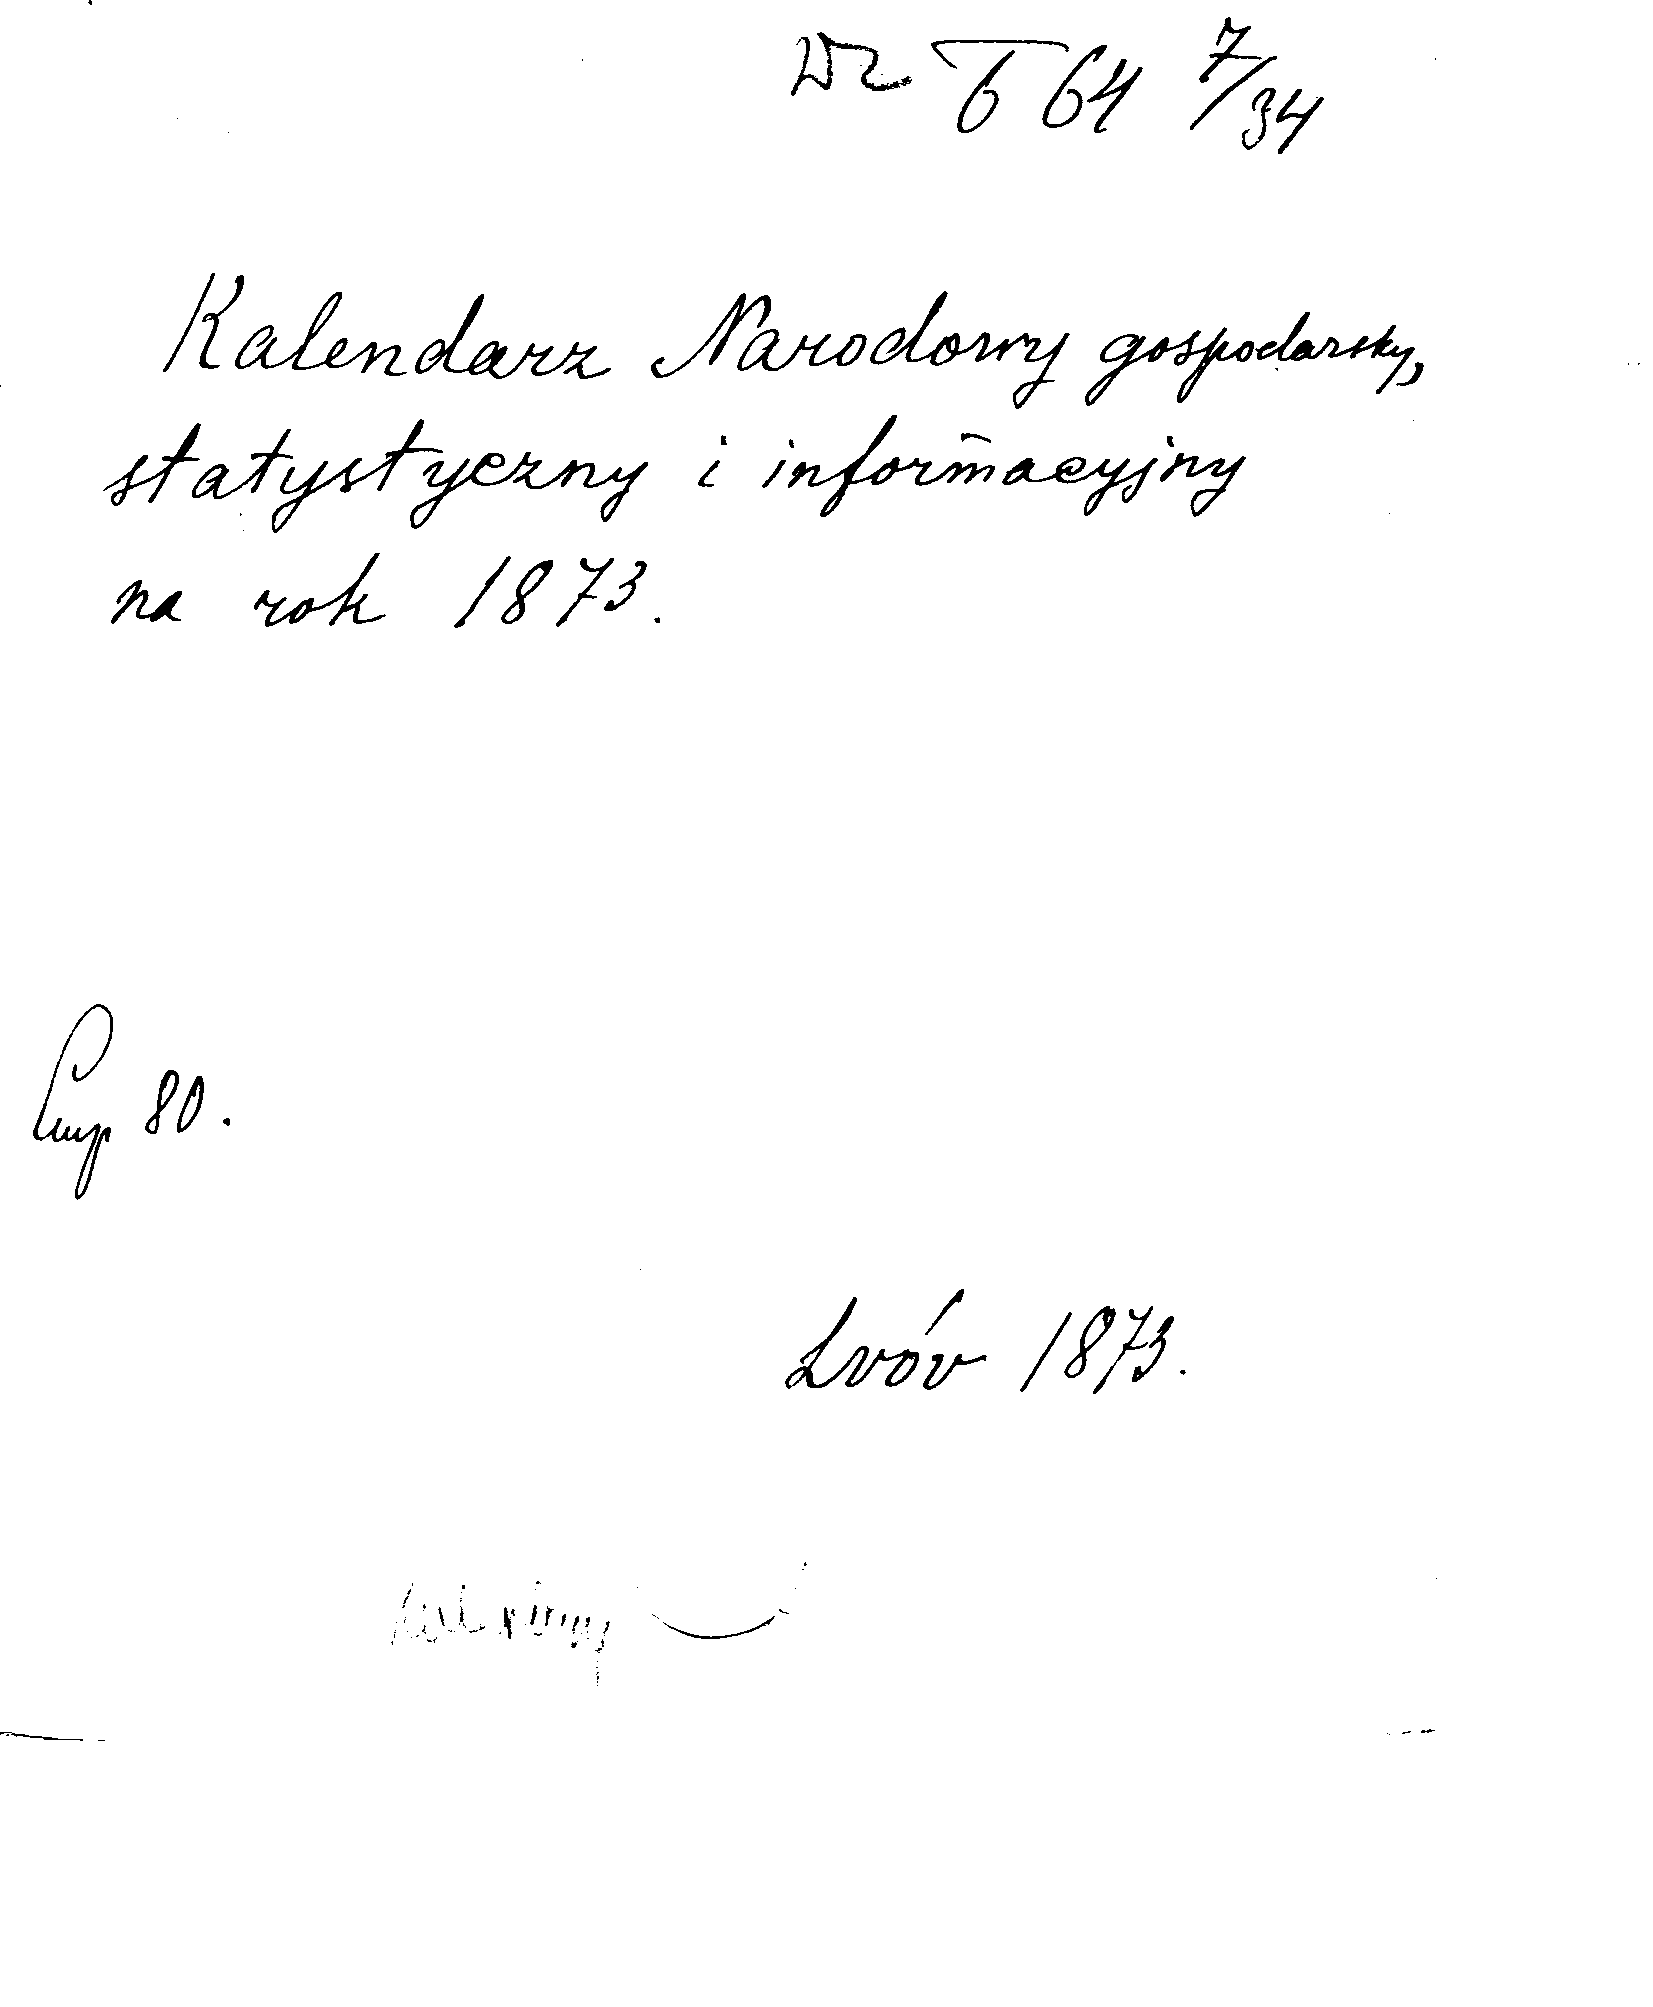 6 64 7/34
Kalendarz Narodowy gospodarsky,
statystyczny i informacyjny
na rok 1873.
80.
Lvóv 1873.